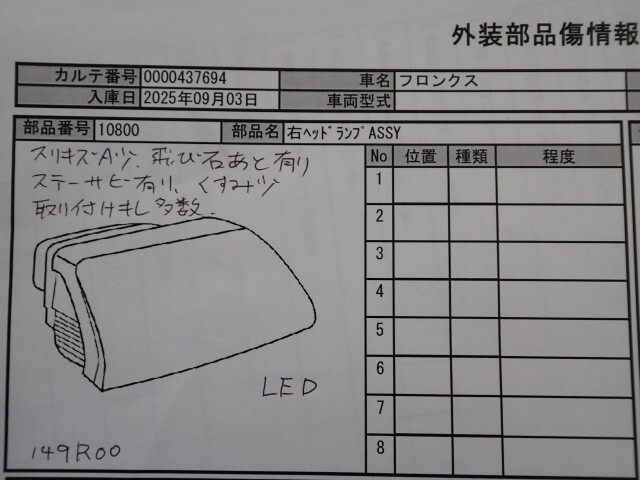 外装部品傷情報
カルテ番号 0000437694 車名 フロンクス
入庫日 2025年09月03日 車両型式
部品番号 10800 部品名 右ﾍｯﾄﾞﾗﾝﾌﾟASSY
スリキズA少、飛び石あと有り
ステーサビ有り、くすみ少
取り付けキし多数.
No 位置 種類 程度
1
2
3
4
5
6
7
8
LED
149R00